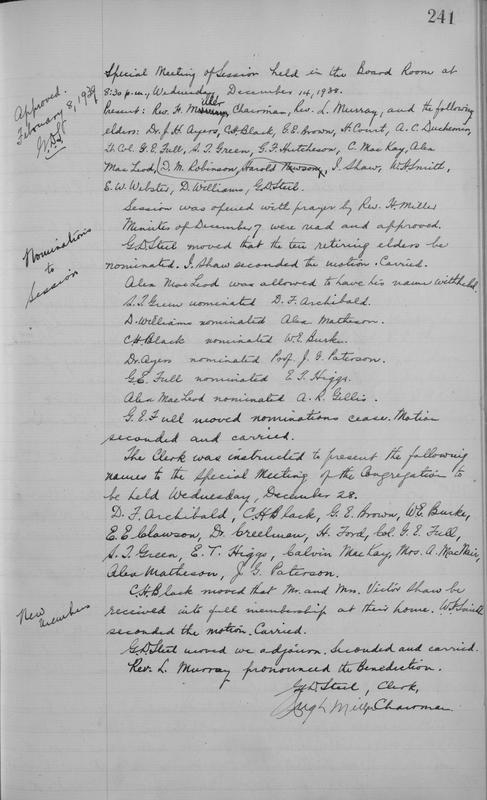 241
Approved.
February 8, 1939
G.D.S.
Special Meeting of Session held in the Board Room at
8:30 p.m., Wednesday, December 14, 1938.
Present: Rev. H. Miller, Chairman, Rev. L. Murray, and the following
elders: Dr. J.H. Ayers, C.H. Black, G.E. Brown, H. Court, A.C. Duchemin,
Lt. Col. G.E. Full, S.T. Green, G.F. Hutcheson, C. MacKay, Alex
MacLeod, D.M. Robinson, Harold Newson, I. Shaw, W.F. Smith,
E.W. Webster, D. Williams, G.D. Steel.
Session was opened with prayer by Rev. H. Miller
Minutes of December 7 were read and approved.
Nominations
to
Session
G.D. Steel moved that the ten retiring elders be
nominated. I. Shaw seconded the motion. Carried.
Alex MacLeod was allowed to have his name withheld.
S.T. Green nominated D.F. Archibald.
D. Williams nominated Alex Matheson.
C.H. Black nominated W.E. Burke.
Dr. Ayers nominated Prof. J.G. Paterson.
G.E. Full nominated E.T. Higgs.
Alex MacLeod nominated A.R. Gillis.
G.E. Full moved nominations cease. Motion
seconded and carried.
The Clerk was instructed to present the following
names to the Special Meeting of the Congregation to
be held Wednesday, December 28.
D.F. Archibald, C.H. Black, G.E. Brown, W.E. Burke,
E.E. Clawson, Dr. Creelman, H. Ford, Col. G.E. Full,
S.T. Green, E.T. Higgs, Calvin MacKay, Mos. A. MacNeir,
Alex Matheson, J.G. Paterson.
New
member
C.H. Black moved that Mr. and Mrs. Victor Shaw be
received into full membership at their home. W.F. Smith
seconded the motion. Carried.
G.D. Steel moved we adjourn. Seconded and carried.
Rev. L. Murray pronounced the Benediction.
G.D. Steel, Clerk,
Hugh Miller Chairman